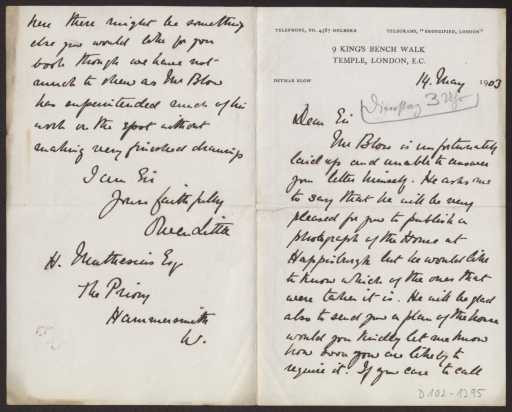 TELEPHONE, NO. 4387 HOLBORN
TELEGRAMS, "
9 KING'S BENCH WALK
TEMPLE, LONDON, E.C.
DETMAR BLOW
14. May 1903
Dear Sir
Mr Blow is unfortunately
laid up and unable to answer
your letter himself. He asks me
to say that he will be very
pleased for you to publish a
photograph of the House at
Happisburgh but he would like
to know which of the ones that
were taken it is. He will be glad
also to send you a plan of the house
would you kindly let me know
how soon you are likely to
require it. If you care to call
D 102-1395
here there might be something
else you would like for your
book though we have not
much to shew as Mr Blow
has superintended much of his
work on the spot without
making very finished drawings
I am Sir
Yours faithfully
H. Muthesius Esq
The Priory
Hammersmith
W.